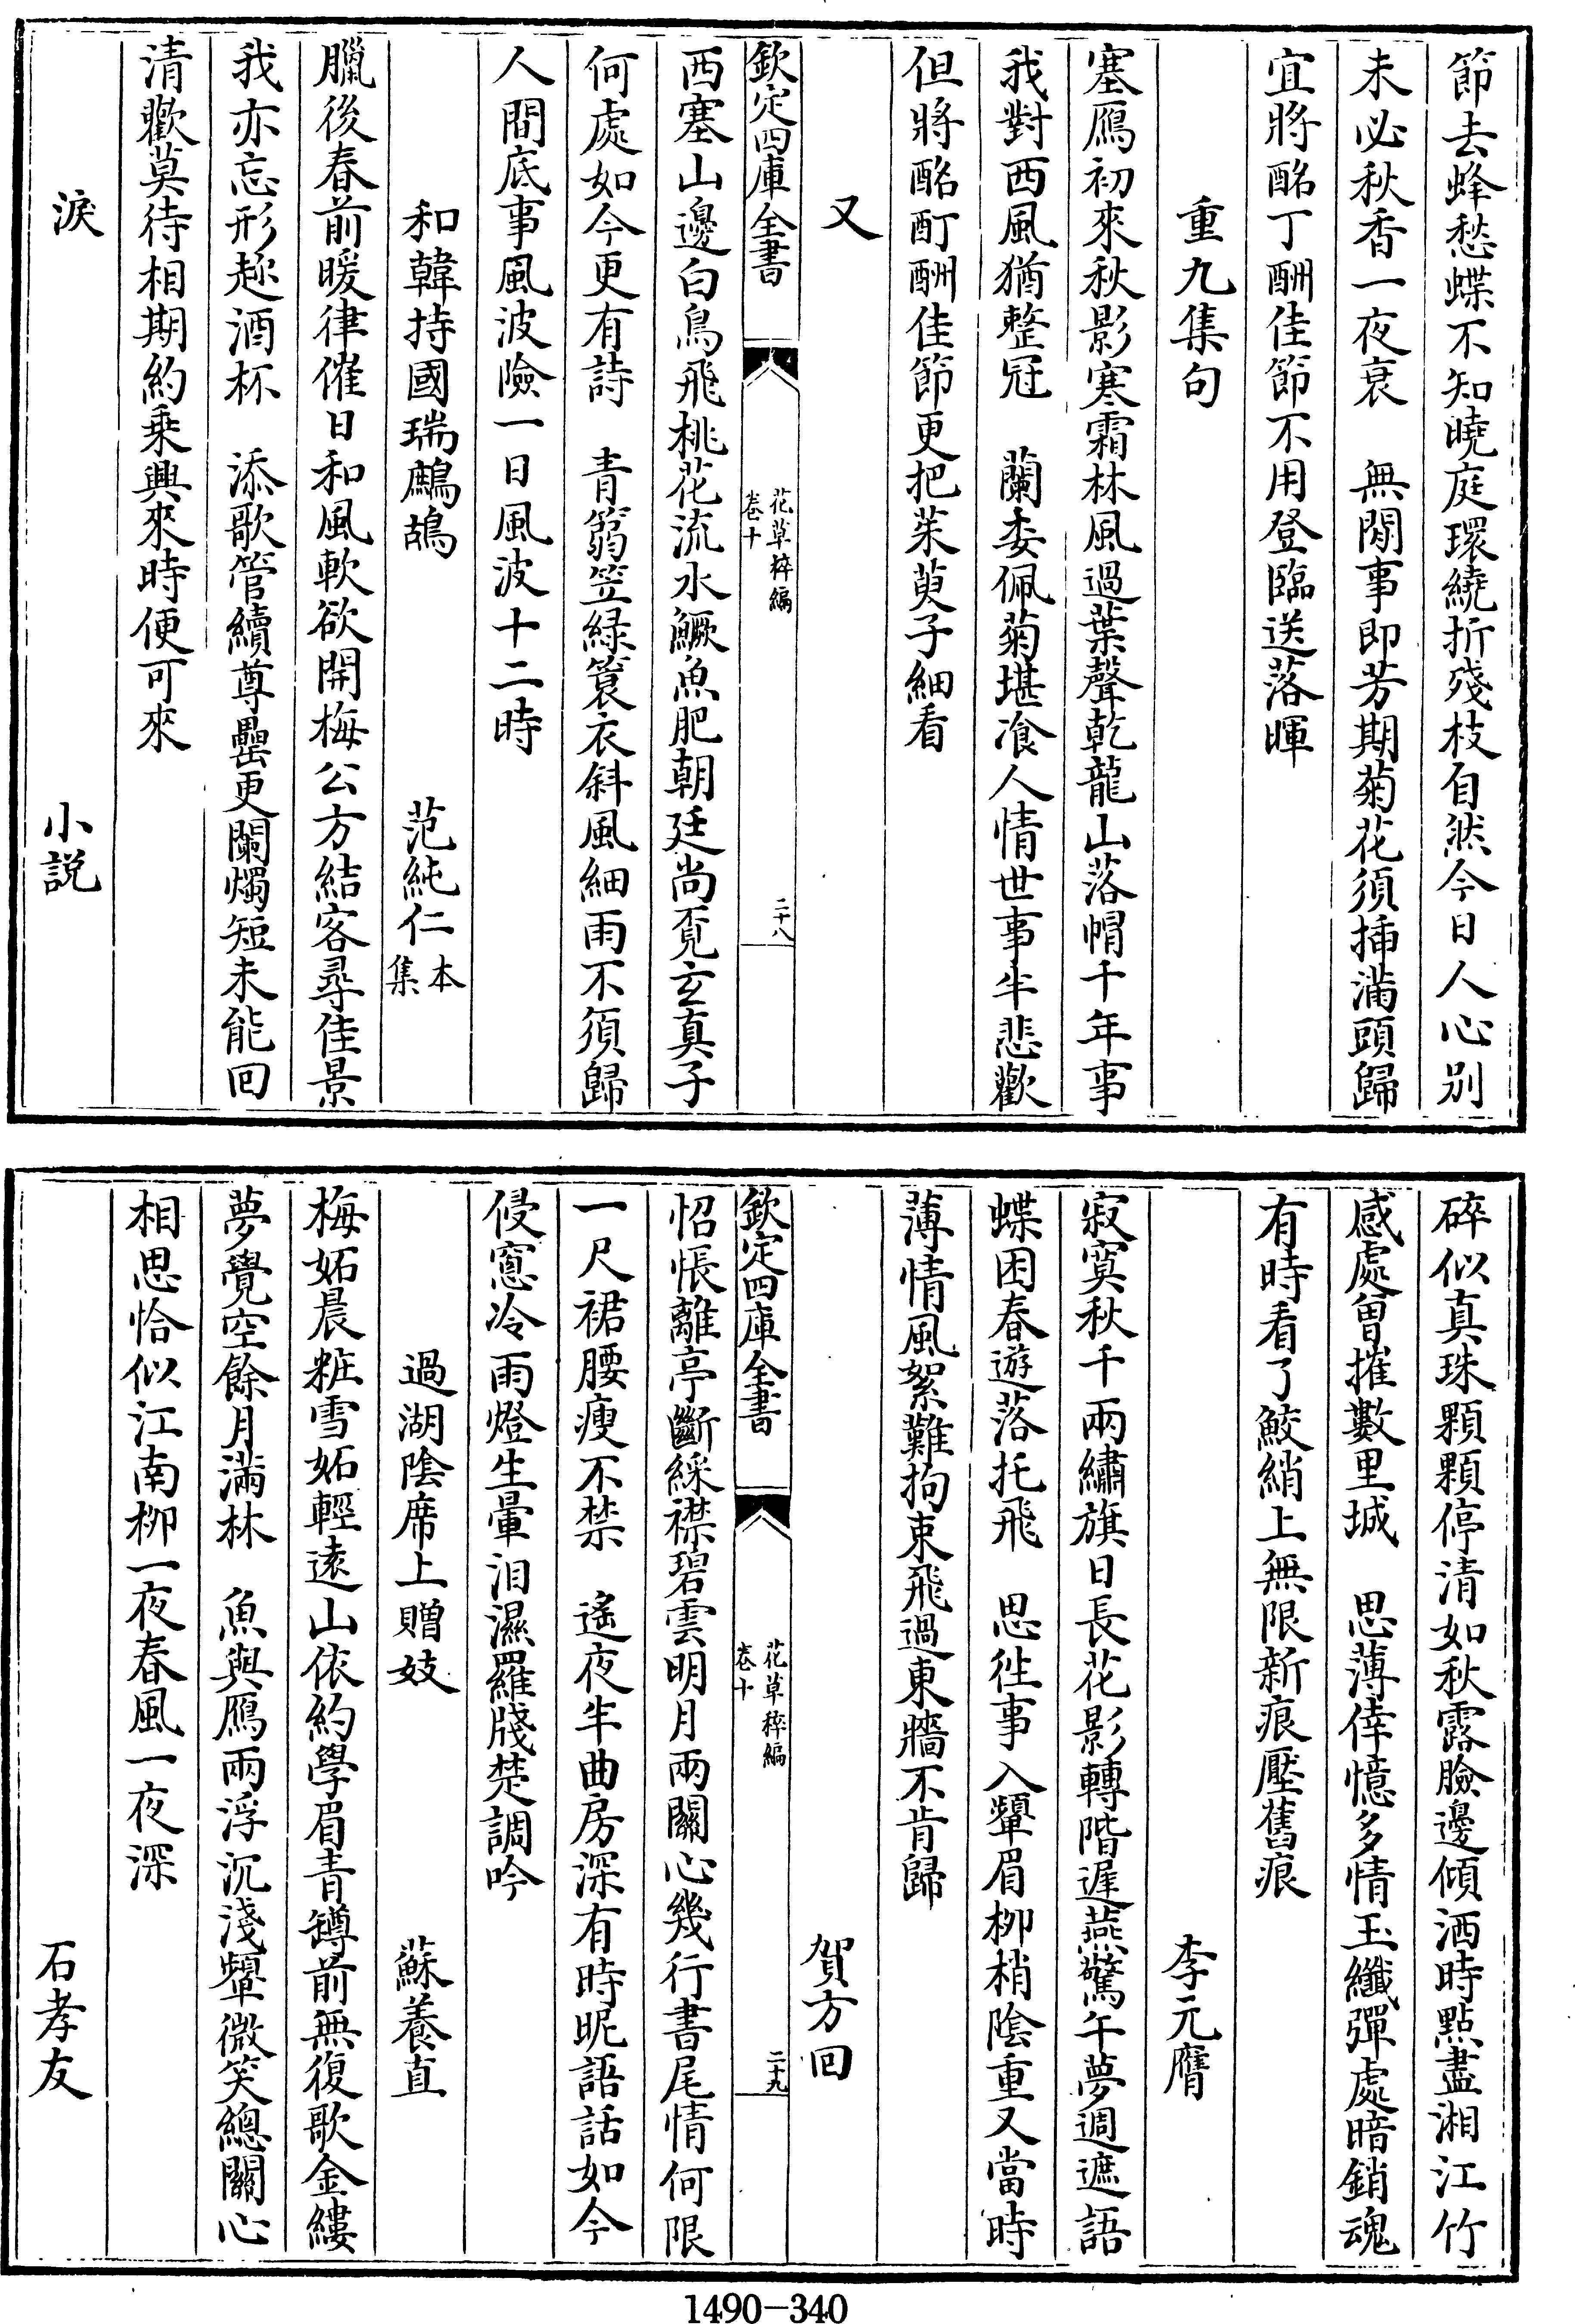 節去蜂愁蝶不知曉庭環繞折殘枝自然今日人心别
未必秋香一夜衰　無閒事即芳期菊花須插滿頭歸
宜將酩丁酬佳節不用登臨送落暉
重九集句
塞鴈初來秋影寒霜林風過葉聲乾龍山落帽千年事
我對西風猶整冠　蘭委佩菊堪飡人情世事半悲歡
但將酩酊酬佳節更把茱萸子細看
又
欽定四庫全書　花草稡編　卷十　二十八
西塞山邊白鳥飛桃花流水鱖魚肥朝廷尚覔玄真子
何處如今更有詩　青篛笠緑簑衣斜風細雨不須歸
人間底事風波險一日風波十二時
和韓持國瑞鷓鴣　范純仁 本集
臘後春前暖律催日和風軟欲開梅公方結客尋佳景
我亦忘形趂酒杯　添歌管續尊罍更闌燭短未能回
清歡莫待相期約乗興來時便可來
淚　小説
碎似真珠顆顆停清如秋露臉邊傾洒時點盡湘江竹
感處曾摧數里城　思薄倖憶多情玉纖彈處暗銷魂
有時看了鮫綃上無限新痕壓舊痕
李元膺
寂寞秋千兩繡旗日長花影轉階遲燕驚午夢週遮語
蝶困春遊落托飛　思徃事入顰眉柳梢陰重又當時
薄情風絮難拘束飛過東牆不肯歸
賀方回
欽定四庫全書　花草稡編　卷十　二十九
怊悵離亭斷綵襟碧雲明月兩關心幾行書尾情何限
一尺裙腰瘦不禁　遙夜半曲房深有時昵語話如今
侵窓冷雨燈生暈泪濕羅牋楚調吟
過湖陰席上贈妓　蘇養直
梅妬晨粧雪妬輕遠山依約學眉青罇前無復歌金縷
夢覺空餘月滿林　魚與鴈兩浮沉淺顰微笑總關心
相思恰似江南柳一夜春風一夜深
石孝友
1490-340